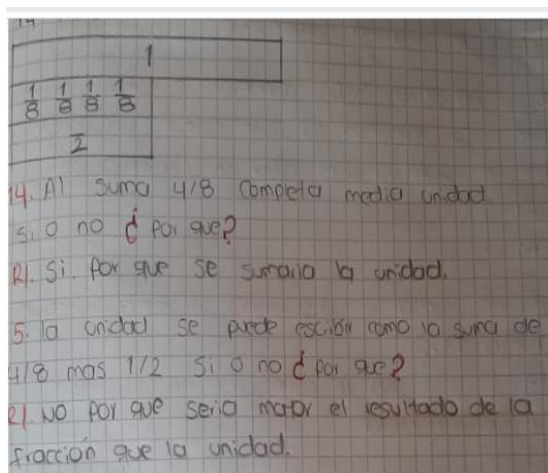 14
1
1/8 1/8 1/8 1/8
2
14. Al suma 4/8 completa media unidad
si o no ¿ por que?
R/. Si. Por que se sumaria la unidad.
5. la unidad se puede escibir como la suma de
4/8 mas 1/2 Si o no ¿ por que?
R/ No por que seria mayor el resultado de la
fracción que la unidad.